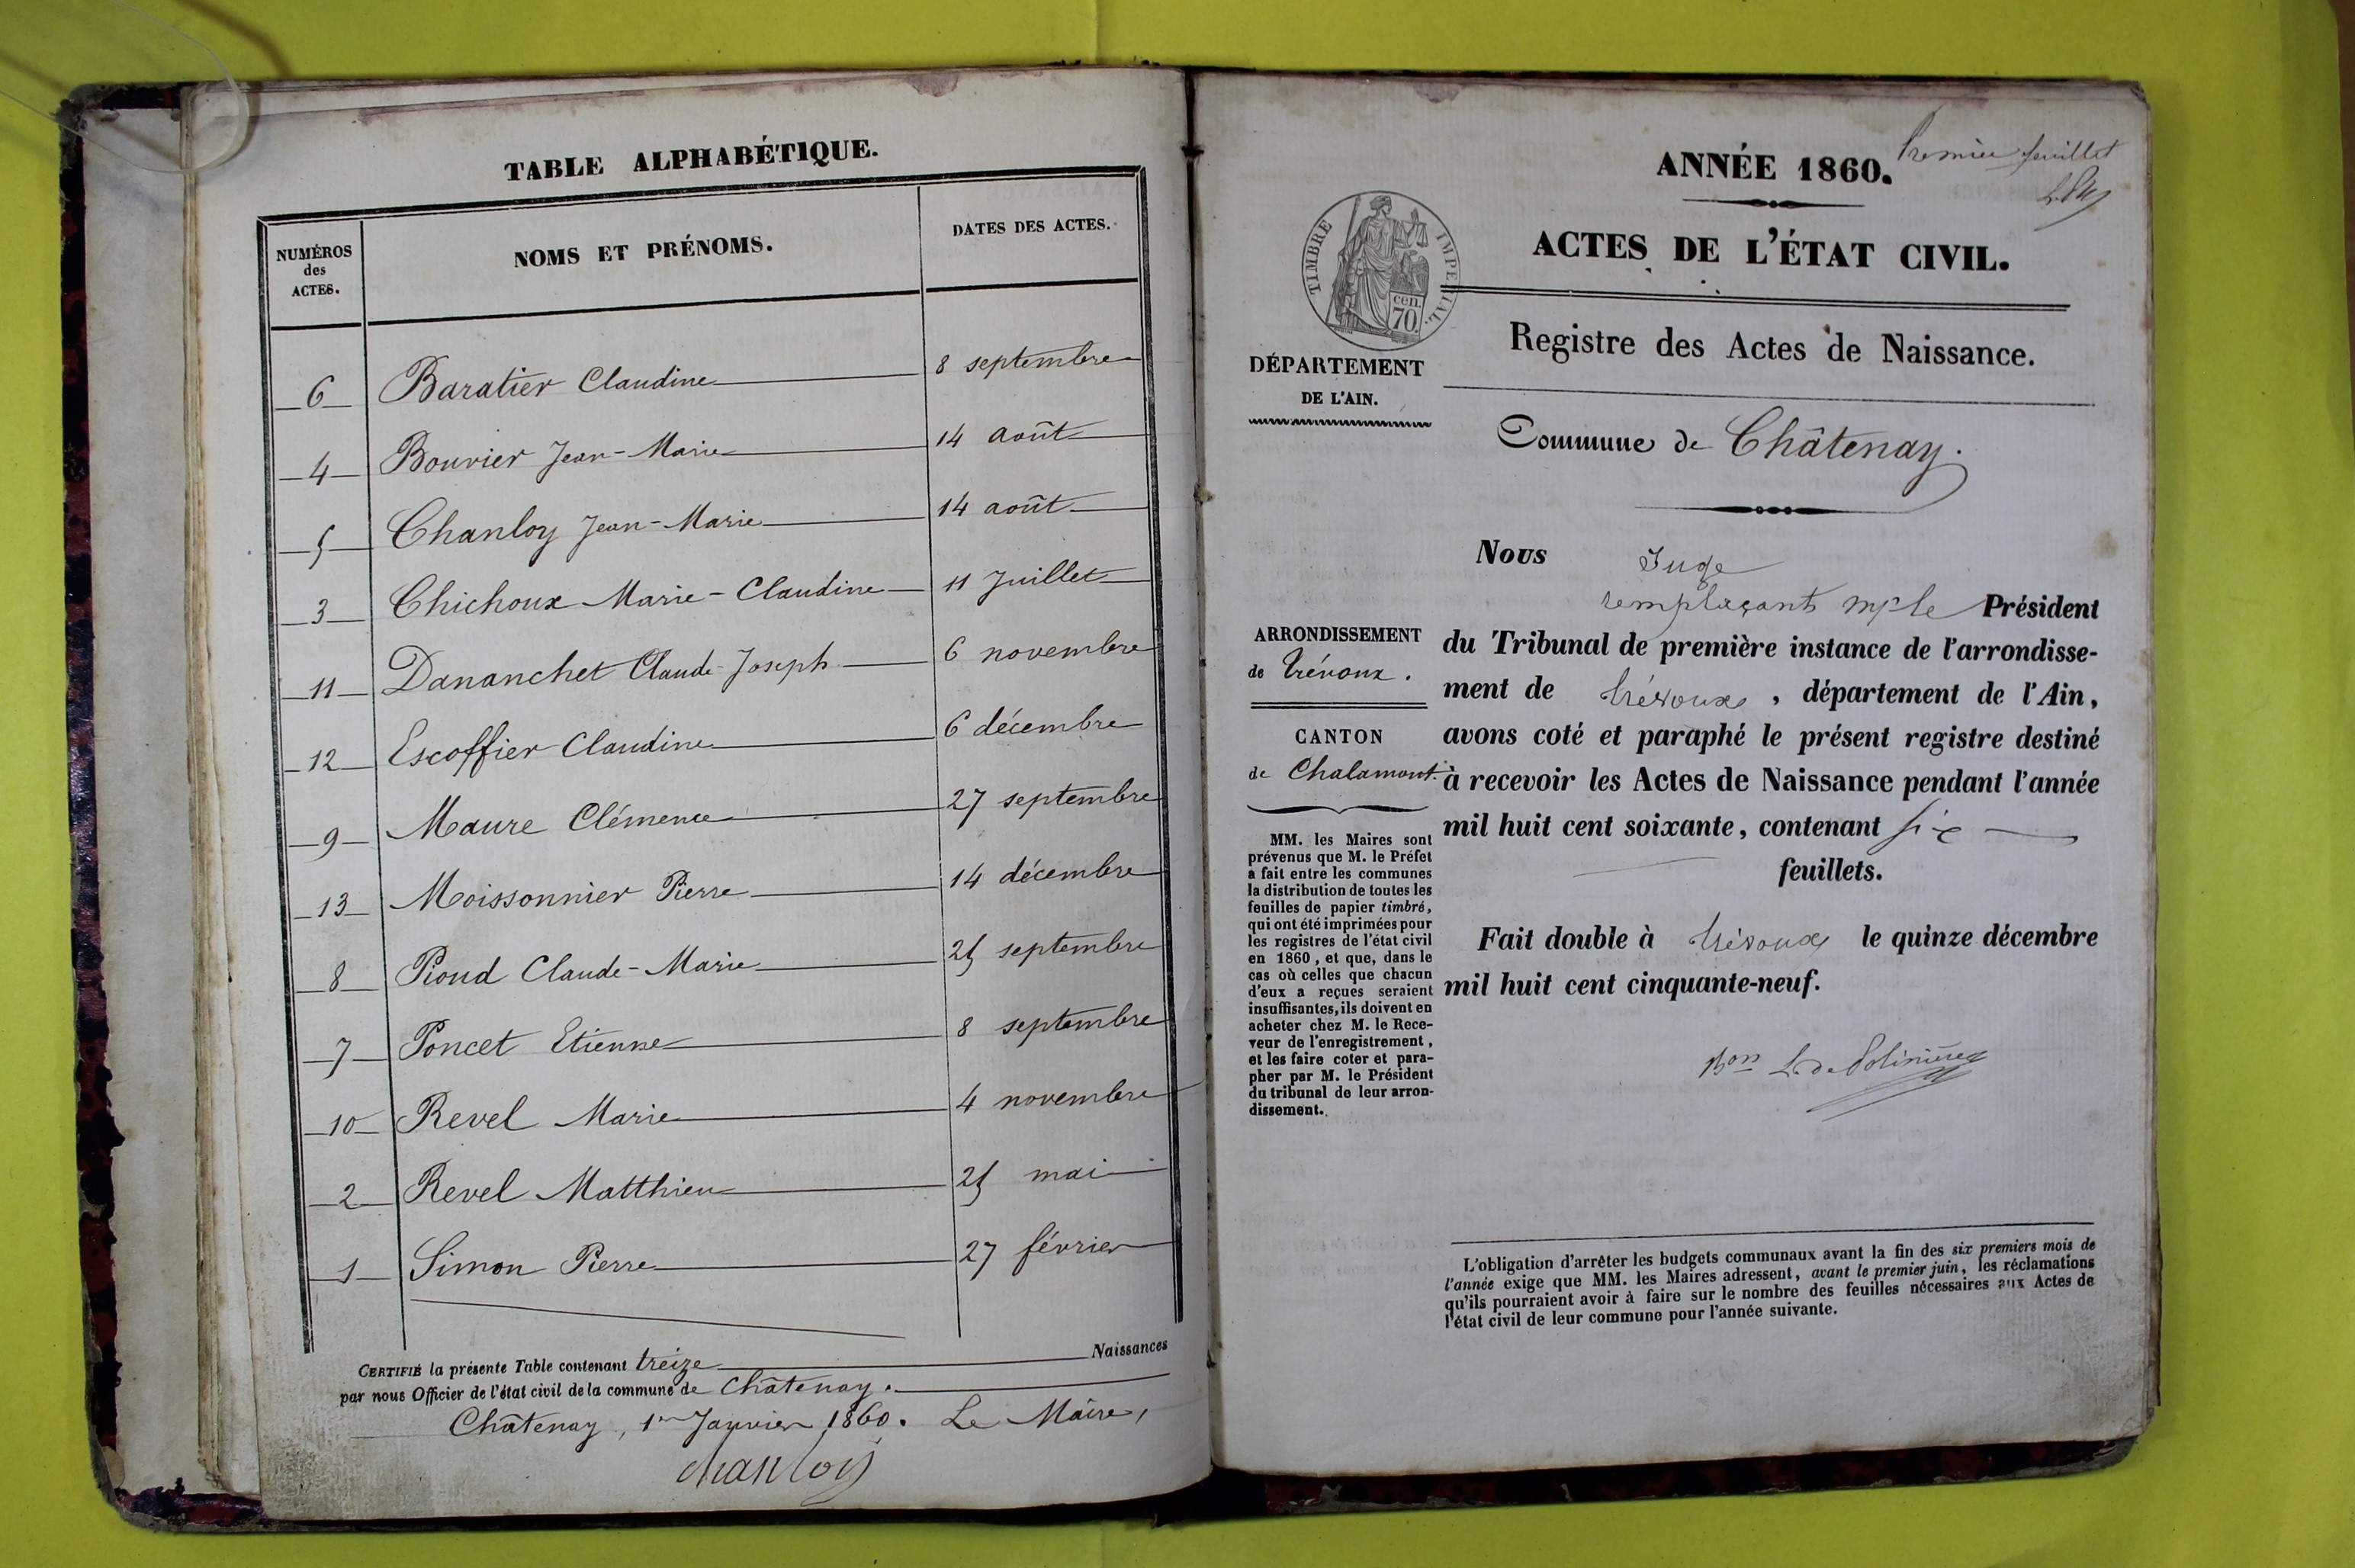 TABLE ALPHABÉTIQUE.
NUMÉROS
des
ACTES.
NOMS ET PRÉNOMS.
DATES DES ACTES.
6 Baratier Claudine 8 septembre
4 Bouvier Jean-Marie 14 août
5 Chanloy Jean-Marie 14 août
3 Chichoux Marie-Claudine 11 Juillet
11 Dananchet Claude-Joseph 6 novembre
12 Escoffier Claudine 6 décembre
9 Maure Clémence 27 septembre
13 Moissonnier Pierre 14 décembre
8 Pioud Claude-Marie 25 septembre
7 Poncet Etienne 8 septembre
10 Revel Marie 4 novembre
2 Revel Matthieu 25 mai
1 Simon Pierre 27 février
CERTIFIÉ la présente Table contenant treize Naissances
par nous Officier de l'état civil de la commune de Châtenay.
Châtenay, 1er Janvier 1860. Le Maire,
chanloy
Premier feuillet
ANNÉE 1860.
ACTES DE L'ÉTAT CIVIL.
TIMBRE IMPERIAL.
cen.
70
Registre des Actes de Naissance.
DÉPARTEMENT
DE L'AIN.
Commune de Châtenay.
ARRONDISSEMENT
de Trévoux.
CANTON
de Chalamont.
MM. les Maires sont
prévenus que M. le Préfet
a fait entre les communes
la distribution de toutes les
feuilles de papier timbré,
qui ont été imprimées pour
les registres de l'état civil
en 1860, et que, dans le
cas où celles que chacun
d'eux a reçues seraient
insuffisantes, ils doivent en
acheter chez M. le Rece-
veur de l'enregistrement,
et les faire coter et para-
pher par M. le Président
du tribunal de leur arron-
dissement.
Nous Juge
remplaçant Président
du Tribunal de première instance de l'arrondisse-
ment de Trévoux, département de l'Ain,
avons coté et paraphé le présent registre destiné
à recevoir les Actes de Naissance pendant l'année
mil huit cent soixante, contenant six
feuillets.
Fait double à Trévoux le quinze décembre
mil huit cent cinquante-neuf.
Bon L. de Polinière
L'obligation d'arrêter les budgets communaux avant la fin des six premiers mois de
l'année exige que MM. les Maires adressent, avant le premier juin, les réclamations
qu'ils pourraient avoir à faire sur le nombre des feuilles nécessaires aux Actes de
l'état civil de leur commune pour l'année suivante.